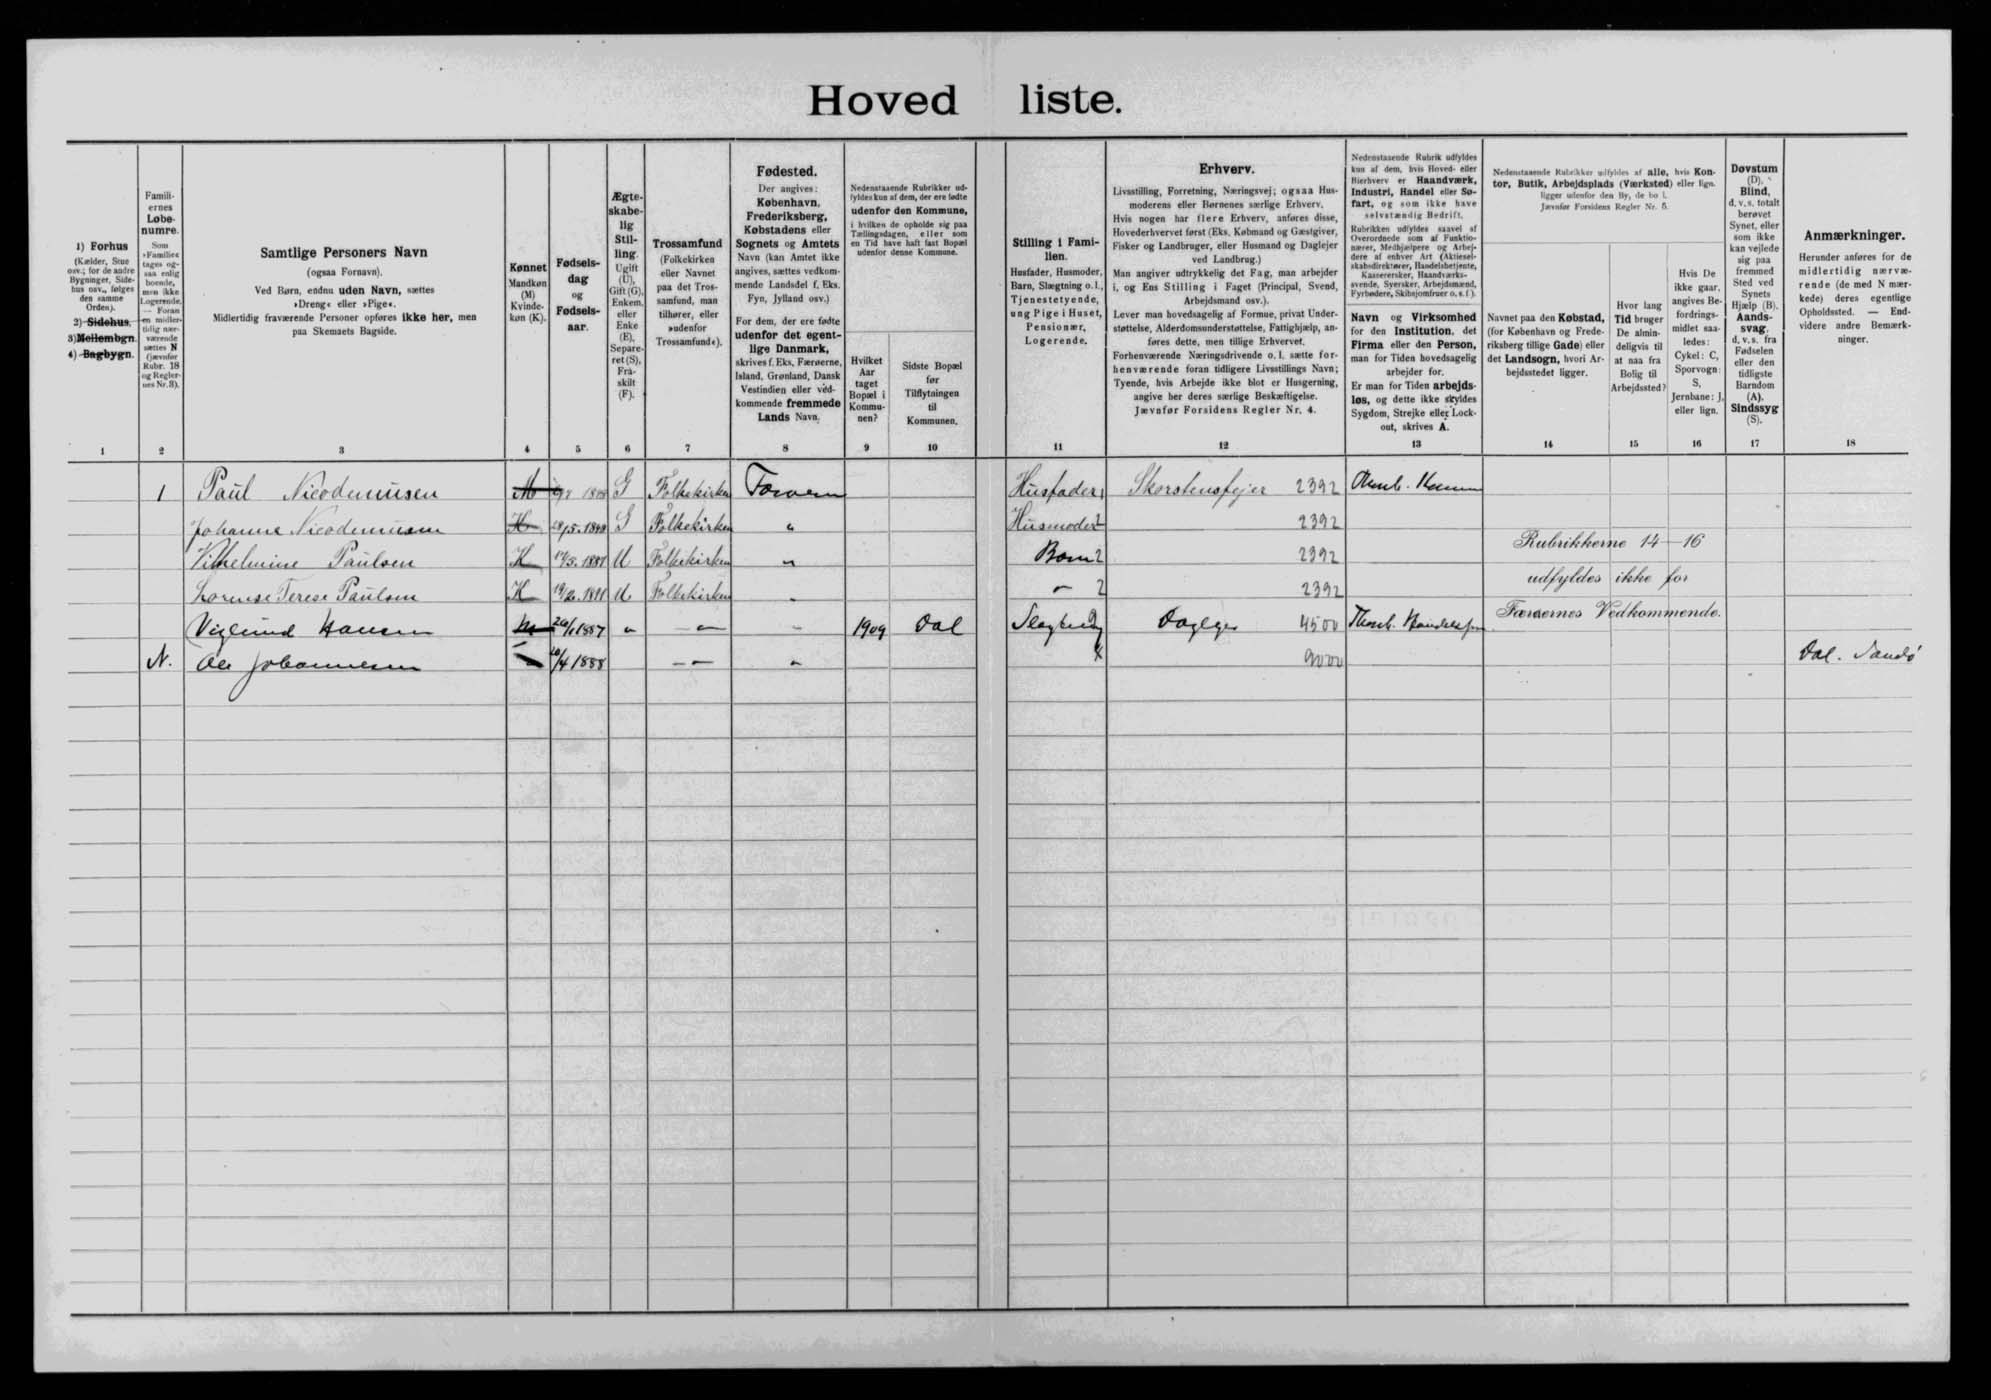 Hoved liste.
1) Forhus
(Kælder, Stue
osv.; for de andre
Bygninger, Side-
hus osv., følges
den samme
Orden).
2) Sidehus.
3) Mellembgn.
4) Bagbygn.
1
Famili-
ernes
Løbe-
numre.
Som
»Familie«
tages og-
saa enlig
boende,
men ikke
Logerende.
— Foran
en midler-
tidig nær-
værende
sættes N
(jævnfør
Rubr. 18
og Regler-
nes Nr. 3).
2
Samtlige Personers Navn
(ogsaa Fornavn).
Ved Børn, endnu uden Navn, sættes
»Dreng« eller »Pige«.
Midlertidig fraværende Personer opføres ikke her, men
paa Skemaets Bagside.
3
Kønnet
Mandkøn
(M)
Kvinde-
køn (K).
4
Fødsels-
dag
og
Fødsels-
aar.
5
Ægte-
skabe-
lig
Stil-
ling.
Ugift
(U),
Gift (G),
Enkem.
eller
Enke
(E),
Separe-
ret (S),
Fra-
skilt
(F).
6
Trossamfund
(Folkekirken
eller Navnet
paa det Tros-
samfund, man
tilhører, eller
»udenfor
Trossamfund«).
7
Fødested.
Der angives:
København,
Frederiksberg,
Købstadens eller
Sognets og Amtets
Navn (kan Amtet ikke
angives, sættes vedkom-
mende Landsdel f. Eks.
Fyn, Jylland osv.)
For dem, der ere fødte
udenfor det egent-
lige Danmark,
skrives f. Eks. Færøerne,
Island, Grønland, Dansk
Vestindien eller ved-
kommende fremmede
Lands Navn.
8
Nedenstaaende Rubrikker ud-
fyldes kun af dem, der ere fødte
udenfor den Kommune,
i hvilken de opholde sig paa
Tællingsdagen, eller som
en Tid have haft fast Bopæl
udenfor denne Kommune.
Hvilket
Aar
taget
Bopæl i
Kommu-
nen?
9
Sidste Bopæl
før
Tilflytningen
til
Kommunen.
10
Stilling i Fami-
lien.
Husfader, Husmoder,
Barn, Slægtning o. l.,
Tjenestetyende,
ung Pige i Huset,
Pensionær,
Logerende.
11
Erhverv.
Livsstilling, Forretning, Næringsvej; ogsaa Hus-
moderens eller Børnenes særlige Erhverv.
Hvis nogen har flere Erhverv, anføres disse,
Hovederhvervet først (Eks. Købmand og Gæstgiver,
Fisker og Landbruger, eller Husmand og Daglejer
ved Landbrug.)
Man angiver udtrykkelig det Fag, man arbejder
i, og Ens Stilling i Faget (Principal, Svend,
Arbejdsmand osv.).
Lever man hovedsagelig af Formue, privat Under-
støttelse, Alderdomsunderstøttelse, Fattighjælp, an-
føres dette, men tillige Erhvervet.
Forhenværende Næringsdrivende o. l. sætte for-
henværende foran tidligere Livsstillings Navn;
Tyende, hvis Arbejde ikke blot er Husgerning,
angive her deres særlige Beskæftigelse.
Jævnfør Forsidens Regler Nr. 4.
12
Nedenstaaende Rubrik udfyldes
kun af dem, hvis Hoved- eller
Bierhverv er Haandværk,
Industri, Handel eller Sø-
fart, og som ikke have
selvstændig Bedrift.
Rubrikken udfyldes saavel af
Overordnede som af Funktio-
nærer, Medhjælpere og Arbej-
dere af enhver Art (Aktiesel-
skabsdirektører, Handelsbetjente,
Kassererskers, Haandværks-
svende, Syersker, Arbejdsmænd,
Fyrbødere, Skibsjomfruer o. s. f.).
Navn og Virksomhed
for den Institution, det
Firma eller den Person,
man for Tiden hovedsagelig
arbejder for.
Er man for Tiden arbejds-
løs, og dette ikke skyldes
Sygdom, Strejke eller Lock-
out, skrives A.
13
Nedenstaaende Rubrikker udfyldes af alle, hvis Kon-
tor, Butik, Arbejdsplads (Værksted) eller lign.
ligger udenfor den By, de bo i.
Jævnfør Forsidens Regler Nr. 5.
Navnet paa den Købstad,
(for København og Frede-
riksberg tillige Gade) eller
det Landsogn, hvori Ar-
bejdsstedet ligger.
14
Hvor lang
Tid bruger
De almin-
deligvis til
at naa fra
Bolig til
Arbejdssted?
15
Hvis De
ikke gaar,
angives Be-
fordrings-
midlet saa-
ledes:
Cykel: C,
Sporvogn:
S,
Jernbane: J,
eller lign.
16
Døvstum
(D),
Blind,
d. v. s. totalt
berøvet
Synet, eller
som ikke
kan vejlede
sig paa
fremmed
Sted ved
Synets
Hjælp (B).
Aands-
svag,
d. v. s. fra
Fødselen
eller den
tidligste
Barndom
(A).
Sindssyg
(S).
17
Anmærkninger.
Herunder anføres for de
midlertidig nærvæ-
rende (de med N mær-
kede) deres egentlige
Opholdssted. — End-
videre andre Bemærk-
ninger.
18
1 Paul Nicodemusen M G Folkekirken Husfader Skorstensfejer 2392
Johanne Nicodemusen K G Folkekirken " Husmoder 2392
Vilhelmine Paulsen K U Folkekirken " Barn 2 2392
Rubrikkerne 14—16
Lorense Terese Paulsen K U Folkekirken " 2 2392
udfyldes ikke for
Viglund Hansen M " — " — " 1909 Dal 4500
Færøernes Vedkommende.
N. Ole Johannesen 20/4 1888 — " — " 9000 Dal. Sandø